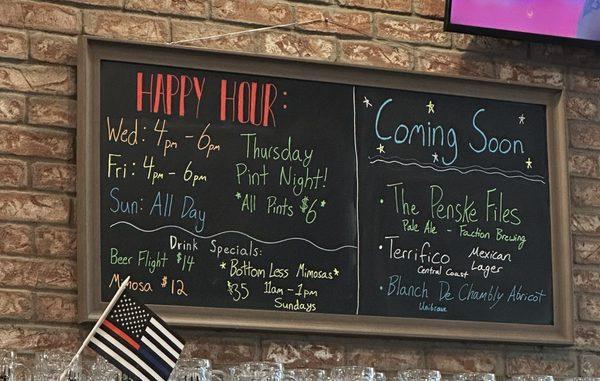 HAPPY HOUR:
Wed: 4pm - 6pm
Fri: 4pm - 6pm
Sun: All Day
Thursday
Pint Night!
*All Pints $6*
Drink Specials:
Beer Flight $14
Mimosa $12
*Bottom Less Mimosas*
$35 11am - 1pm
Sundays
Coming Soon
· The Penske Files
Pale Ale - Faction Brewing
· Terrifico Mexican
Central Coast Lager
· Blanch De Chambly Abricot
Unibroue